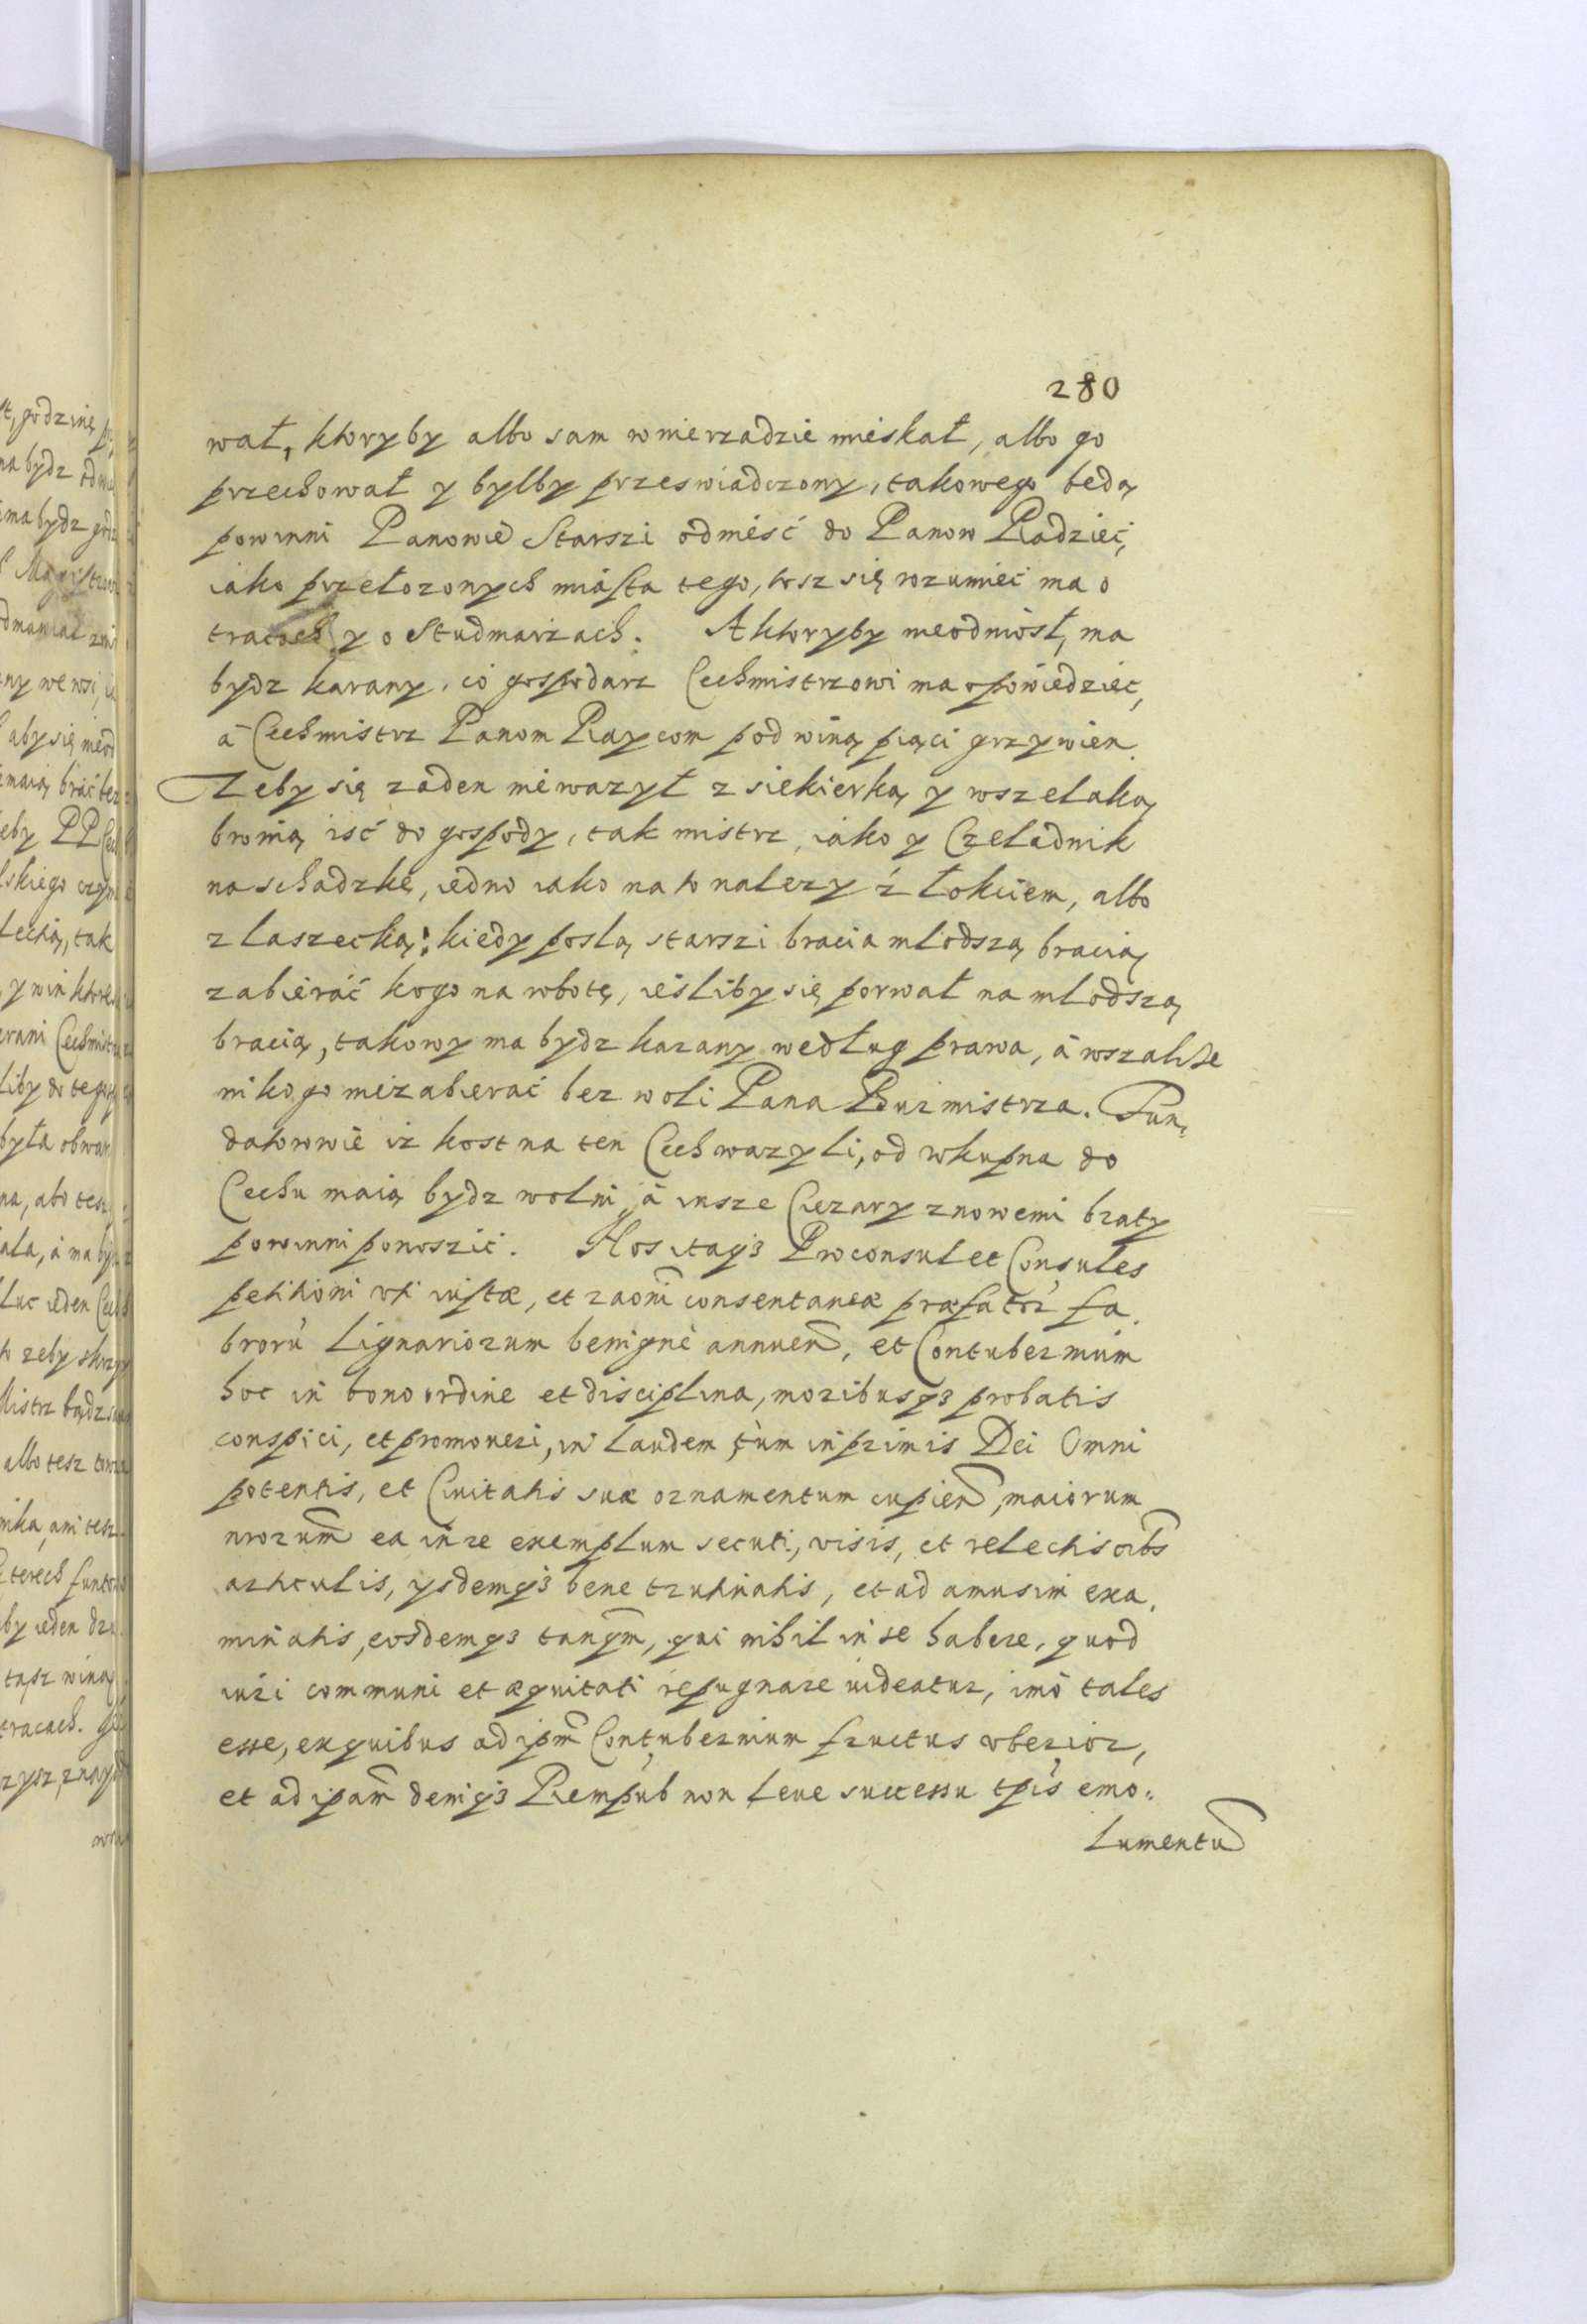 280
wał, ktoryby albo sam wnierzadzie mieskał, albo go
przechował y bylby przeswiadczony, takowego bedą
powinni Panowie Starszi odniesć do Panow Radziec,
iako przełozonych miasta tego, tosz się rozumieć ma o
tracach y o Studniarzach. A ktoryby nieodniosł, ma
bydz karany, co gospodarz Cechmistrzowi ma opowiedziec,
à Cechmistrz Panom Raycom pod winą piąci grzywien.
Zeby się zaden niewazył z siekierką y wszelaką
bronią isć do gospody, tak mistrz, iako y Czeladnik
na schadzkę, iedno iako na to nalezy z łokciem, albo
z laszecką; kiedy poslą starszi bracia mlodszą bracią
zabierać kogo na robotę, iesliby się porwał na mlodszą
bracią, takowy ma bydz karany według prawa, à wszakże
nikogo niezabierać bez woli Pana Burmistrza. Fun,
datorowie iz kost na ten Cech wazyli, od wkupna do
Cechu maią bydz wolni, à insze Ciezary znowemi braty
powinni ponoszic. Nos itaq3 Proconsul et Consules
petitioni uti iustæ, et raoni consentaneæ præfator fa,
broru Lignariorum benignè annuen, et Contubernium
hoc in bono ordine et disciplina, moribusq3 probatis
conspici, et promoveri, in laudem tùm inprimis Dei Omni
potentis, et Civitatis suæ ornamentum cupien, maiorum
nrorum ea in re exemplum secuti, visis, et relectis oibs
articulis, ysdemq3 bene trutinatis, et ad amusim exa,
minatis, eosdemq3 tanqm, qui nihil in se habere, quod
iuri communi et æquitati repugnare uideatur, imò tales
esse, exquibus ad ipm Contubernium fructus vberior,
et ad ipam deniq3 Rempub non leue successu tpis emo:
lumentu